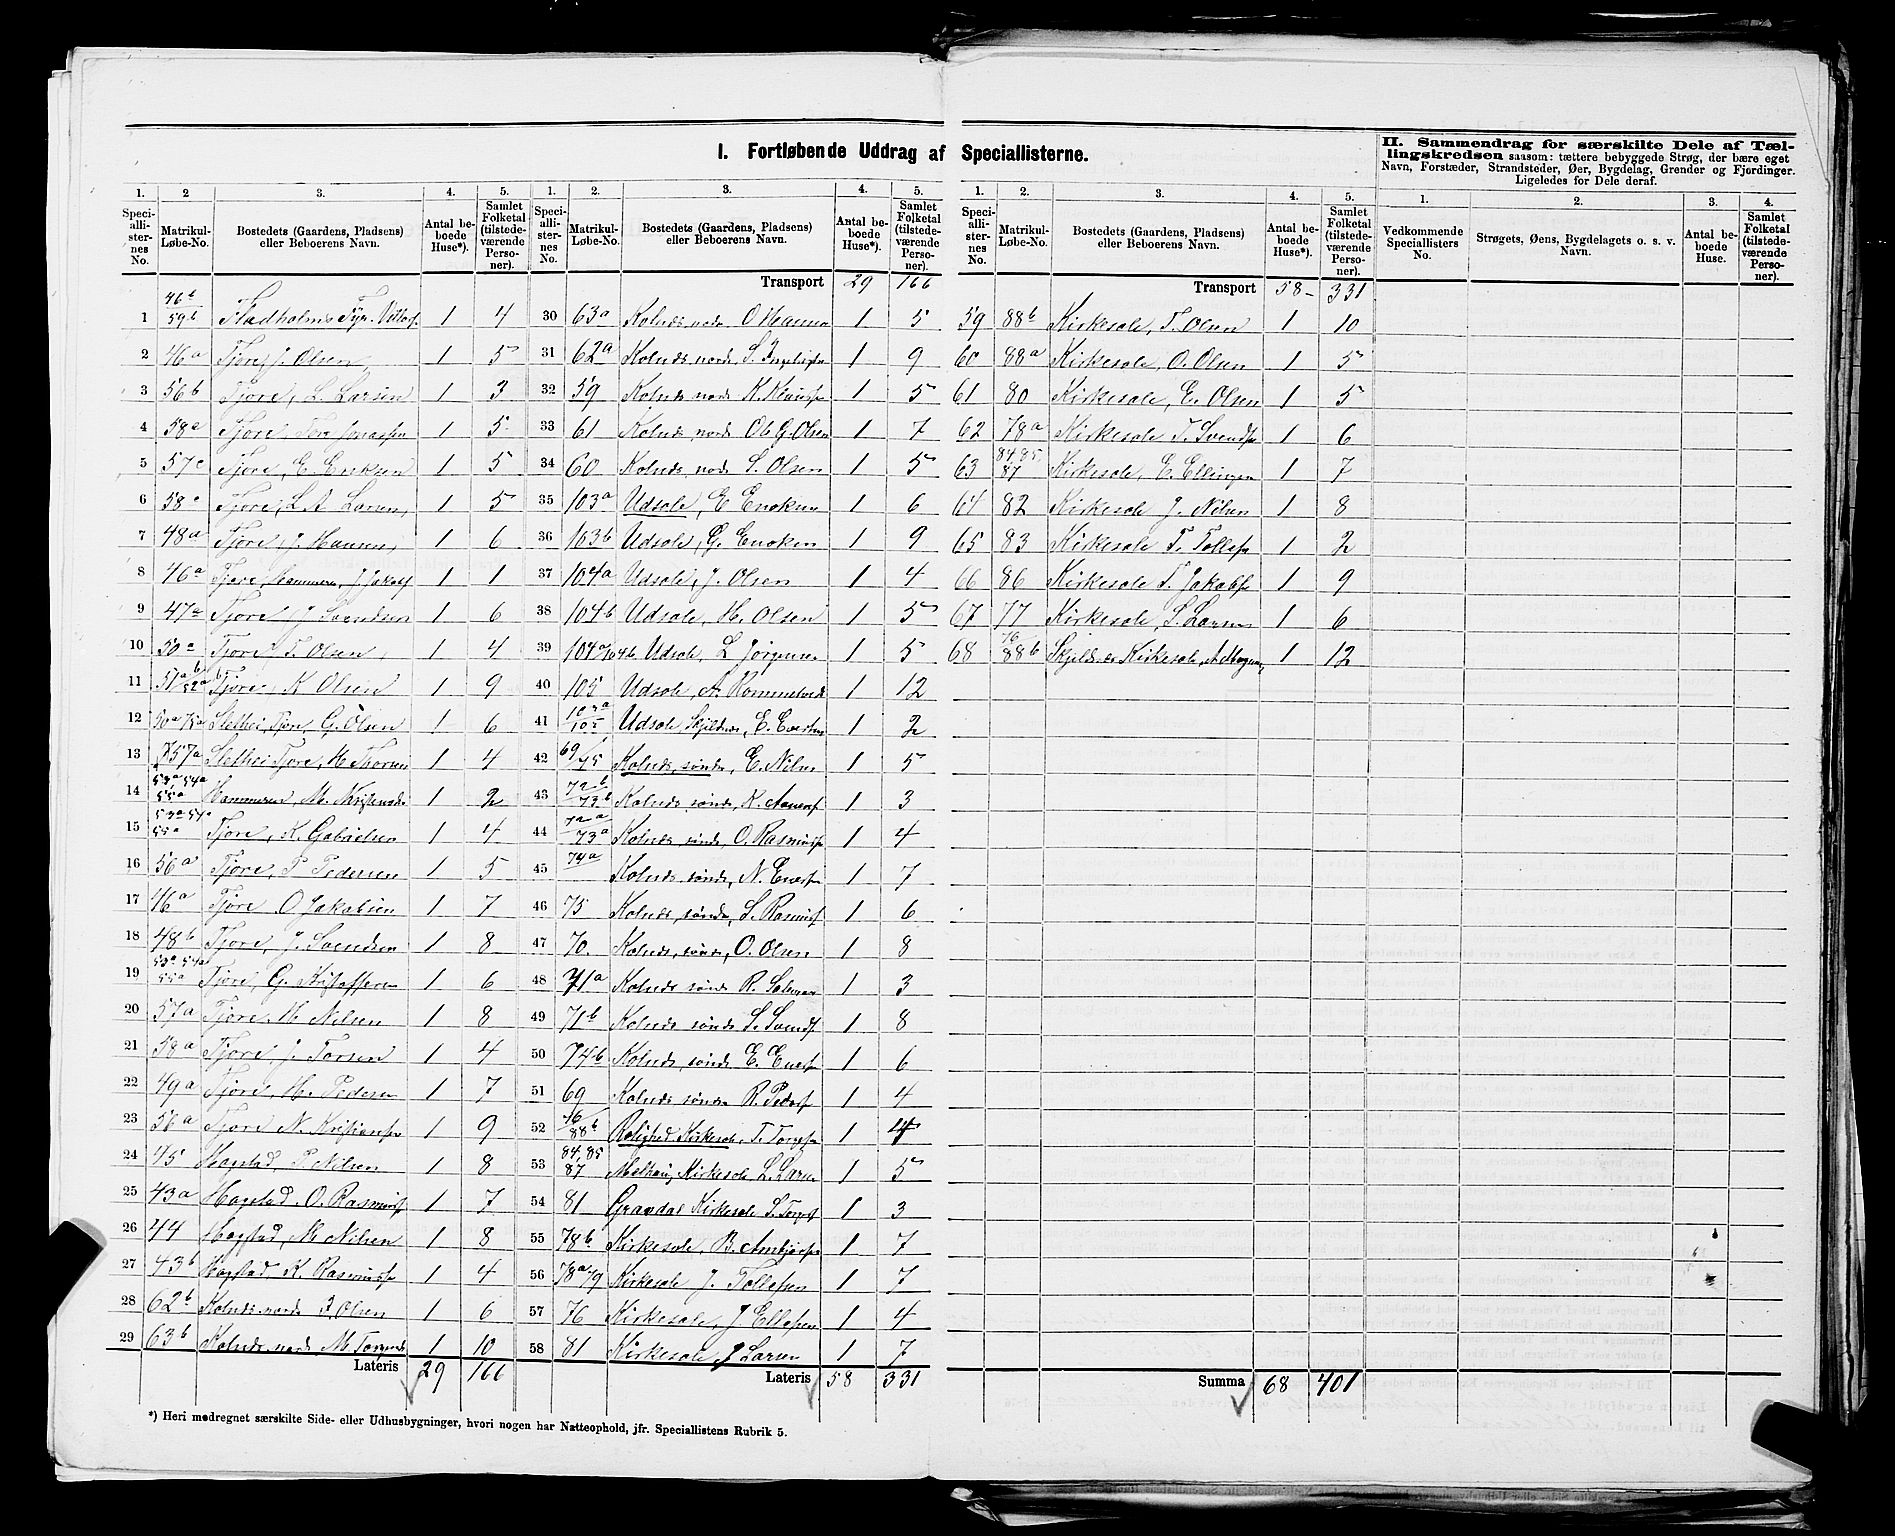 I. Fortløbende Uddrag af Speciallisterne.
II. Sammendrag for særskilte Dele af Tæl-
lingskredsen saasom: tættere bebyggede Strøg, der bære eget
Navn, Forstæder, Strandsteder, Øer, Bygdelag, Grender og Fjordinger.
Ligeledes for Dele deraf.
1. 2 3. 4. 5. 1. 2. 3. 4. 5. 1. 2. 3. 4. 5. 1. 2. 3. 4.
Speciallisternes No. Matrikul-Løbe-No. Bostedets (Gaardens, Pladsens) eller Beboerens Navn. Antal beboede Huse*). Samlet Folketal (tilstedeværende Personer).
Speciallisternes No. Matrikul-Løbe-No. Bostedets (Gaardens, Pladsens) eller Beboerens Navn. Antal beboede Huse*). Samlet Folketal (tilstedeværende Personer).
Speciallisternes No. Matrikul-Løbe-No. Bostedets (Gaardens, Pladsens) eller Beboerens Navn. Antal beboede Huse*). Samlet Folketal (tilstedeværende Personer).
Vedkommende Speciallisters No. Strøgets, Øens, Bygdelagets o. s. v. Navn. Antal beboede Huse. Samlet Folketal (tilstedeværende Personer).
1 46b 59b 1 4
2 46a Tjore, J. Olsen 1 5
3 56b Tjore, L. Larsen 1 3
4 58a Tjore, 1 5
5 57c Tjore, E. Eriksen 1 5
6 Tjore, L A Larsen 1 5
7 48a Tjore, J. Hansen 1 6
8 46a Tjore, Hammeren, J 1 1
9 47a Tjore J Svendsen 1 6
10 50a Tjore T. Olsen 1 4
11 Tjore, K Olsen 1 9
12 50a 75a Slethei, Tjore, G. Olsen 1 6
13 57a Slethei Tjore, H 1 4
14 53a 54a 55a Hammeren, M. 1 2
15 53a 54a 55a Tjore, K. Gabrielsen 1 4
16 56a Tjore, P Pedersen 1 5
17 46a Tjore O Jakobsen 1 7
18 48b Tjore, J. Svendsen 1 8
19 53a 54a 55a Tjore, G. Kristoffersen 1 6
20 57a Tjore, H Nilsen 1 8
21 58a Tjore J. Torsen 1 4
22 49a Tjore H. Pedersen 1 7
23 56a Tjore N. 1 9
24 45 Hogstad P Nilsen 1 8
25 43a Hogstad O. 1 7
26 44 Hogstad, M Nilsen 1 8
27 43b Hogstad, K. 1 4
28 62b Kolnes nordr Olsen 1 6
29 63b Kolnes nordr M 1 10
Lateris 29 166
Transport 29 166
30 63a Kolnes nordr O Hansen 1 5
31 62a Kolnes nordr S. 1 9
32 59 Kolnes nordr K. 1 5
33 61 Kolnes nordr Ol. G. Olsen 1 7
34 60 Kolnes nordr S. Olsen 1 5
35 103a Udsole, E Enoksen 1 6
36 103b Udsole, G. Enoksen 1 9
37 104a Udsole, J. Olsen 1 4
38 104b Udsole, H. Olsen 1 5
39 Udsole, L Jørgensen 1 5
40 105 Udsole, A. Rommetvedt 1 12
41 103a 105 Udsole, Skjeldnes, E. 1 2
42 69/75 Kolnes, søndr, E. Nilsen 1 5
43 72b/73b Kolnes, søndr, K. 1 3
44 72a/73a Kolnes, søndr, O. 1 4
45 74a Kolnes søndr, N. 1 7
46 75 Kolnes, søndr, S. 1 6
47 70. Kolnes, søndr, O. Olsen 1 8
48 71a Kolnes søndr R. 1 3
49 71b Kolnes søndr S. 1 8
50 74b Kolnes, søndr E. 1 6
51 69 Kolnes søndr R. 1 4
52 76/88b Rolighed Kirkesole, T. 1 4
53 84, 85 87 Melhaug Kirkesole L. Larsen 1 5
54 81 Grandal Kirkesole S. 1 3
55 78b Kirkesole, B. 1 7
56 78a 79 Kirkesole J. Tollefsen 1 7
57 76 Kirkesole, J Ellefsen 1 4
58 81 Kirkesole J Larsen 1 7
Lateris 58 331
Transport 58 331
59 88b Kirkesole, T. Olsen 1 10
60 88a Kirkesole, O. Olsen 1 5
61 80 Kirkesole, E. Olsen 1 5
62 78a Kirkesole T. 1 6
63 84, 85 87 Kirkesole, E. Ellingsen 1 7
64 82 Kirkesole J. Nilsen 1 8
65 83 Kirkesole T. 1 2
66 86 Kirkesole T. 1 9
67 77 Kirkesole, S. Larsen 1 6
68 76 88b Kirkesole, 1 12
Summa 68 401
*) Heri medregnet særskilte Side- eller Udhusbygninger, hvori nogen har Natteophold, jfr. Speciallistens Rubrik 5.